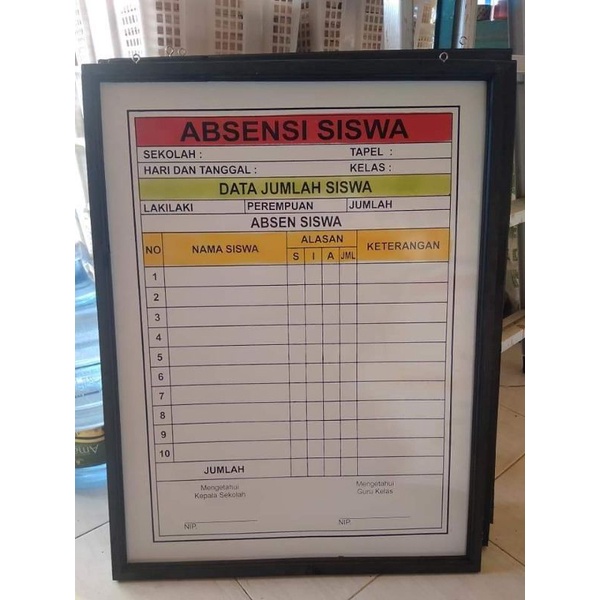 ABSENSI SISWA
SEKOLAH : TAPEL :
HARI DAN TANGGAL : KELAS :
DATA JUMLAH SISWA
LAKILAKI PEREMPUAN JUMLAH
ABSEN SISWA
NO NAMA SISWA ALASAN KETERANGAN
S I A JML
1
2
3
4
5
6
7
8
9
10
JUMLAH
Mengetahui Mengetahui
Kapala Sekolah Guru Kelas
NIP. NIP.